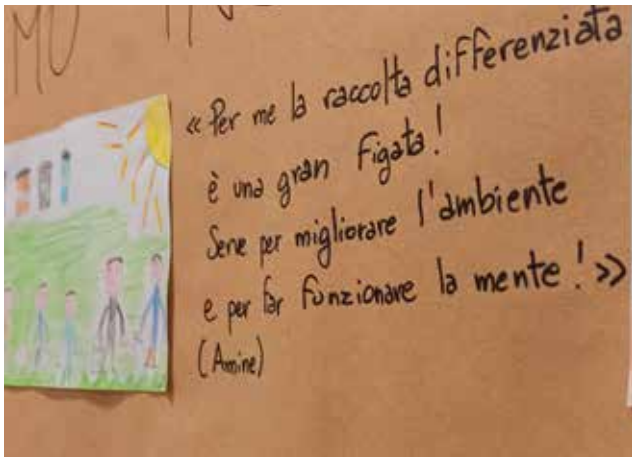 « Per me la raccolta differenziata
è una gran figata!
Serve per migliorare l'ambiente
e per far funzionare la mente! »
(Amine)